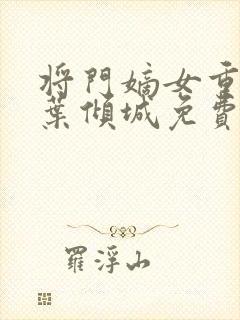 将門嫡女重
葉傾城免費
羅浮山